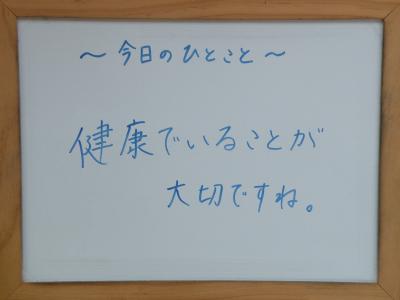 ～今日のひとこと～
健康でいることが
大切ですね。